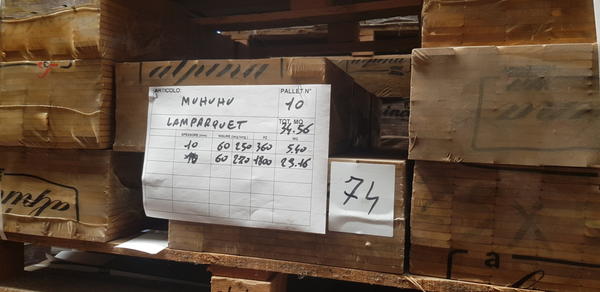 alpina
ARTICOLO: PALLET N°
MUHUHU 10
LAMPARQUET TOT. MQ
34.56
SPESSORE (mm) MISURE (larg/lung) PZ MQ
10 60 250 360 5.40
10 60 270 1800 29.16
74